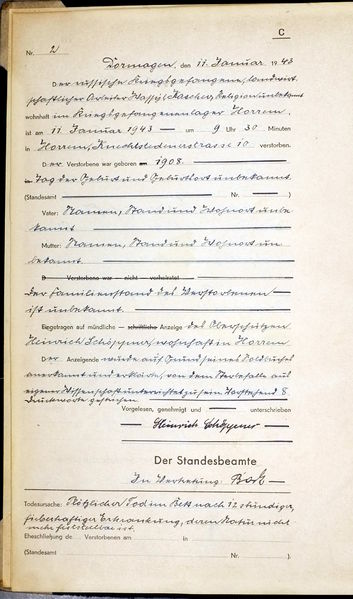 C
Nr. 2
Dormagen, den 11. Januar 1943
Der russische Kriegsgefangene, landwirt-
schaftlicher Arbeiter Wassyl Kascher, Religion unbekannt
wohnhaft im Kriegsgefangenenlager Horrem
ist am 11. Januar 1943 um 9 Uhr 30 Minuten
in Horrem, Knechtstedenerstrasse 10 verstorben.
Der Verstorbene war geboren am 1908.
in Tag der Geburt und Geburtsort unbekannt.
(Standesamt Nr. )
Vater: Namen, Stand und Wohnort unbe-
kannt
Mutter: Namen, Stand und Wohnort un-
bekannt.
D Verstorbene war nicht verheiratet
Der Familienstand des Verstorbenen
ist unbekannt.
Eingetragen auf mündliche schriftliche Anzeige des Oberschützen
Heinrich Schöppener, wohnhaft in Horrem
Der Anzeigende wurde auf Grund seines Soldbuches
anerkannt und erklärte, von dem Sterbefalle aus
eigener Wissenschaft unterrichtet zu sein. Vorstehend 8
Druckworte gestrichen.
Vorgelesen, genehmigt und unterschrieben
Heinrich Schöppener
Der Standesbeamte
In Vertretung:
Todesursache: Plötzlicher Tod im Bett nach 12 stündiger,
fieberhaftiger Erkrankung, deren Natur nicht
mehr feststellbar ist.
Eheschließung de Verstorbenen am in
(Standesamt Nr. ).